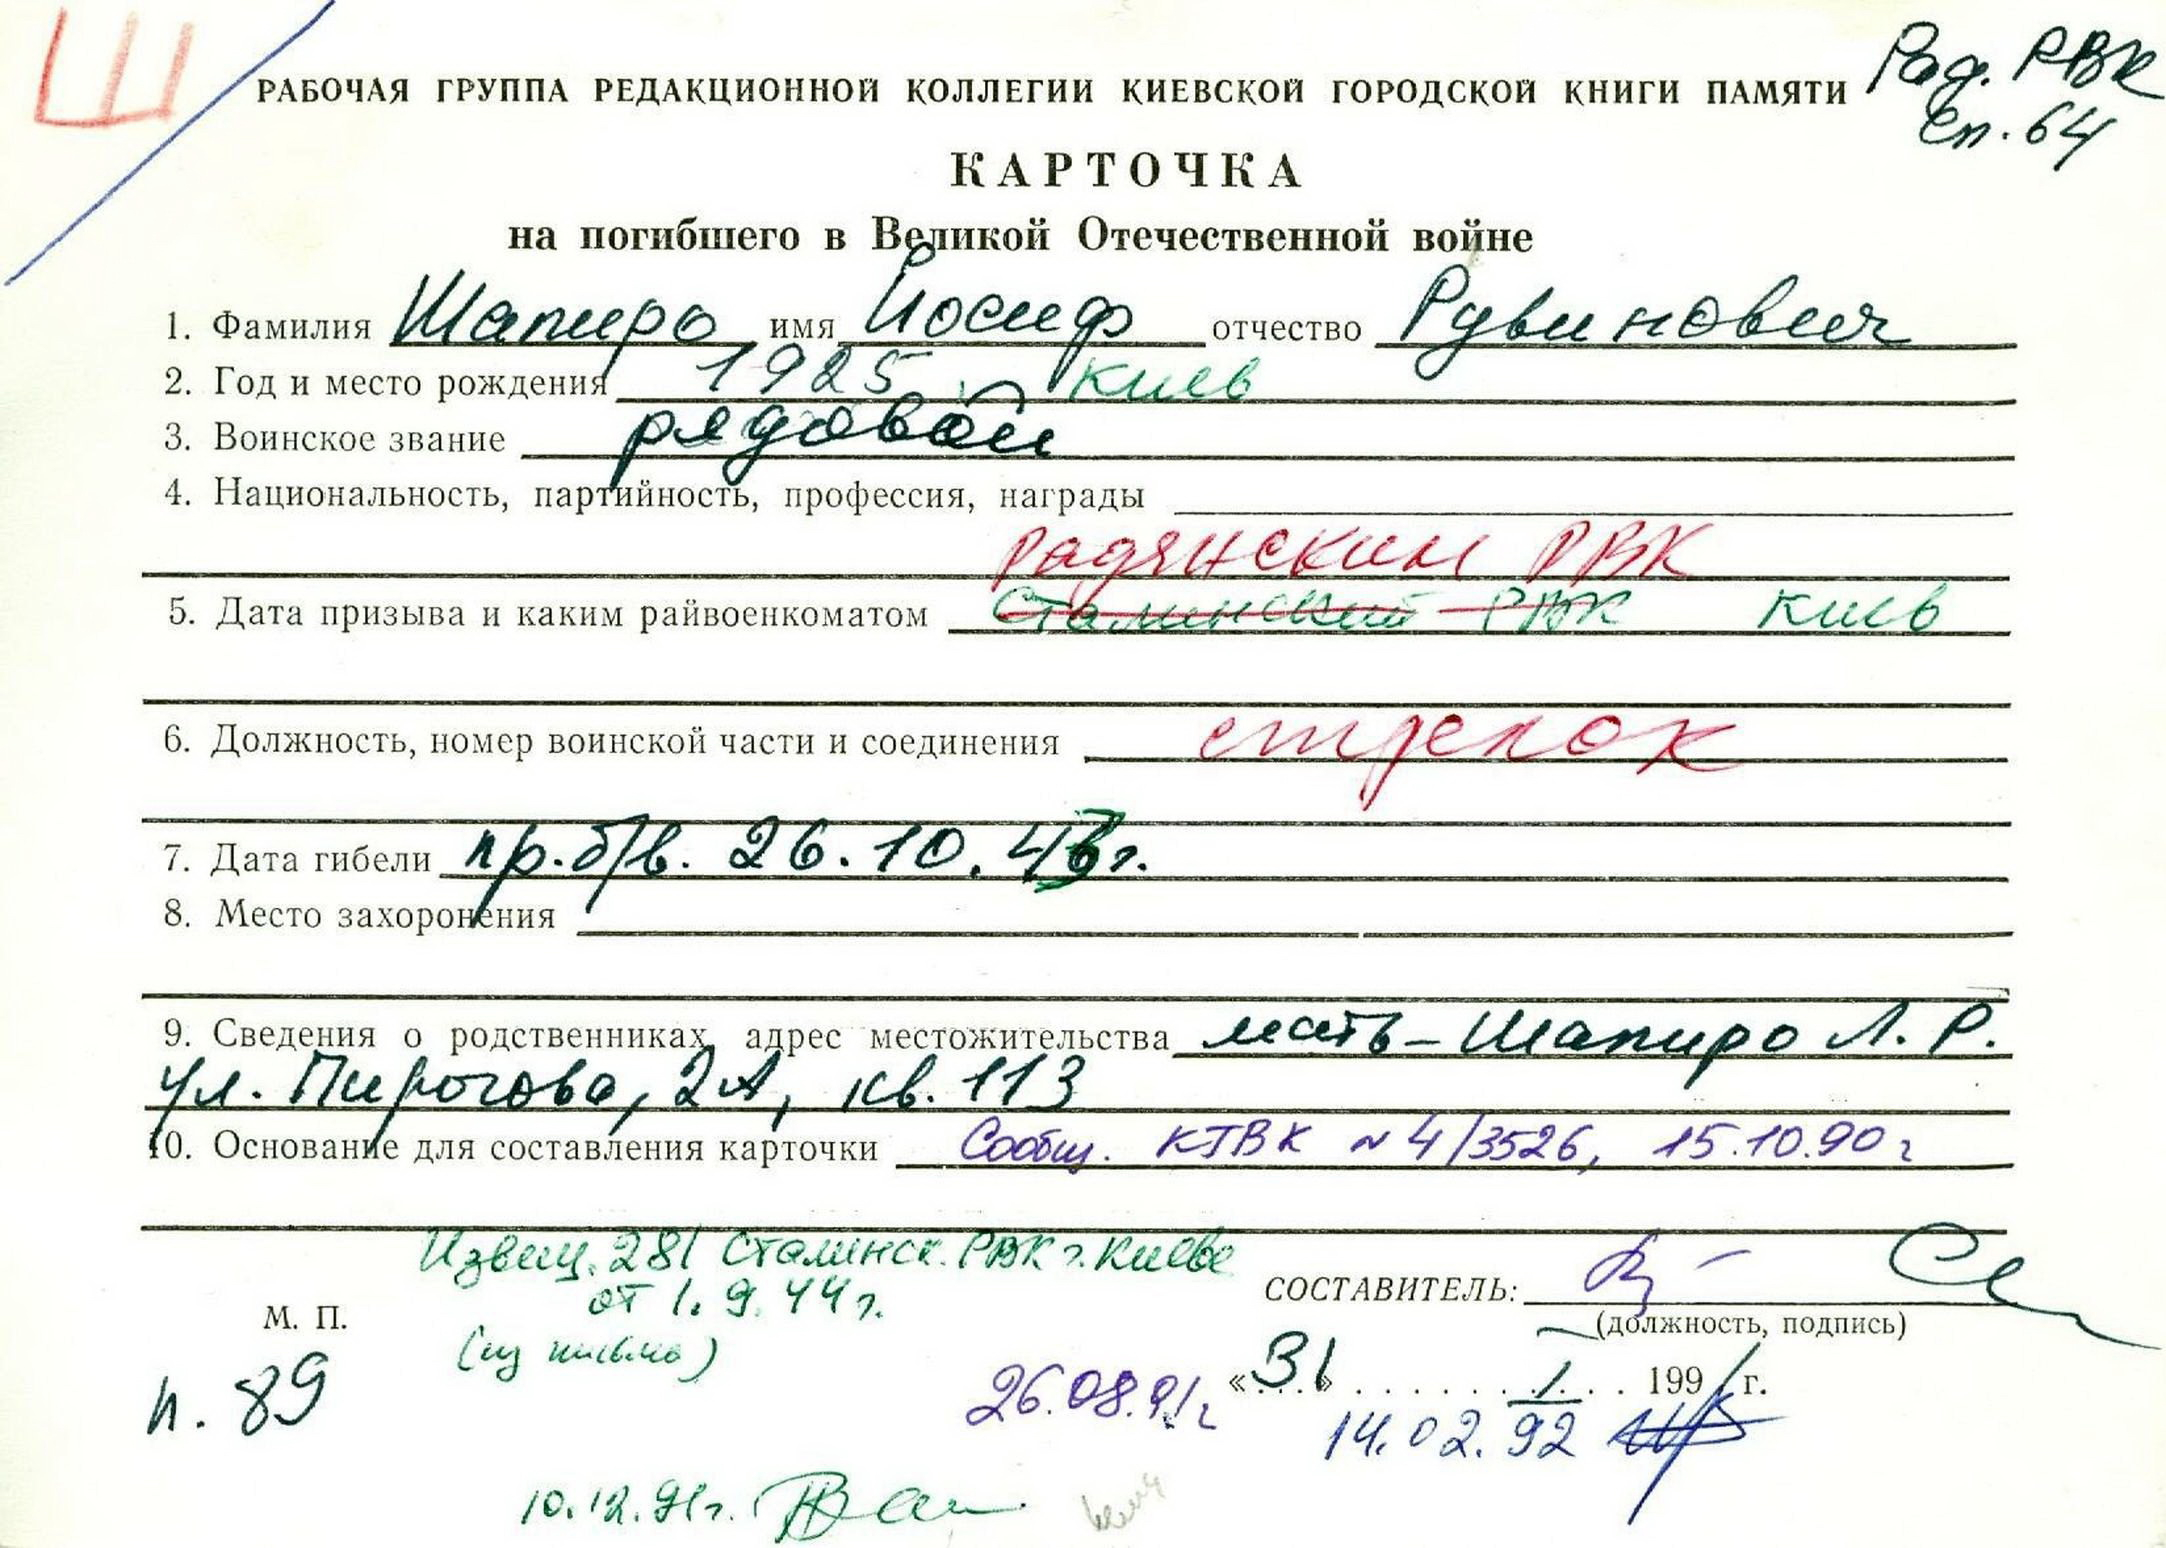 Ш
РАБОЧАЯ ГРУППА РЕДАКЦИОННОЙ КОЛЛЕГИИ КИЕВСКОЙ ГОРОДСКОЙ КНИГИ ПАМЯТИ Рад. РВК
сп. 64
КАРТОЧКА
на погибшего в Великой Отечественной войне
1. Фамилия Шапиро имя Иосиф отчество Рувинович
2. Год и место рождения 1925 Киев
3. Воинское звание рядовой
4. Национальность, партийность, профессия, награды
Радянским РВК
5. Дата призыва и каким райвоенкоматом Сталинский РВК Киев
6. Должность, номер воинской части и соединения стрелок
7. Дата гибели пр.б/в. 26.10.43г.
8. Место захоронения
9. Сведения о родственниках, адрес местожительства мать – Шапиро Л. Р.
ул. Пирогова, 2А, кв. 113
10. Основание для составления карточки Сообщ. КГВК № 4/3526, 15.10.90 г
Извещ. 281 Сталинск. РВК г. Киева
от 1. 9. 44 г.
(из письма)
СОСТАВИТЕЛЬ:
(должность, подпись)
М. П.
п. 89
26.08.91г «31» 1 1991 г.
14.02.92
10.12.91г.